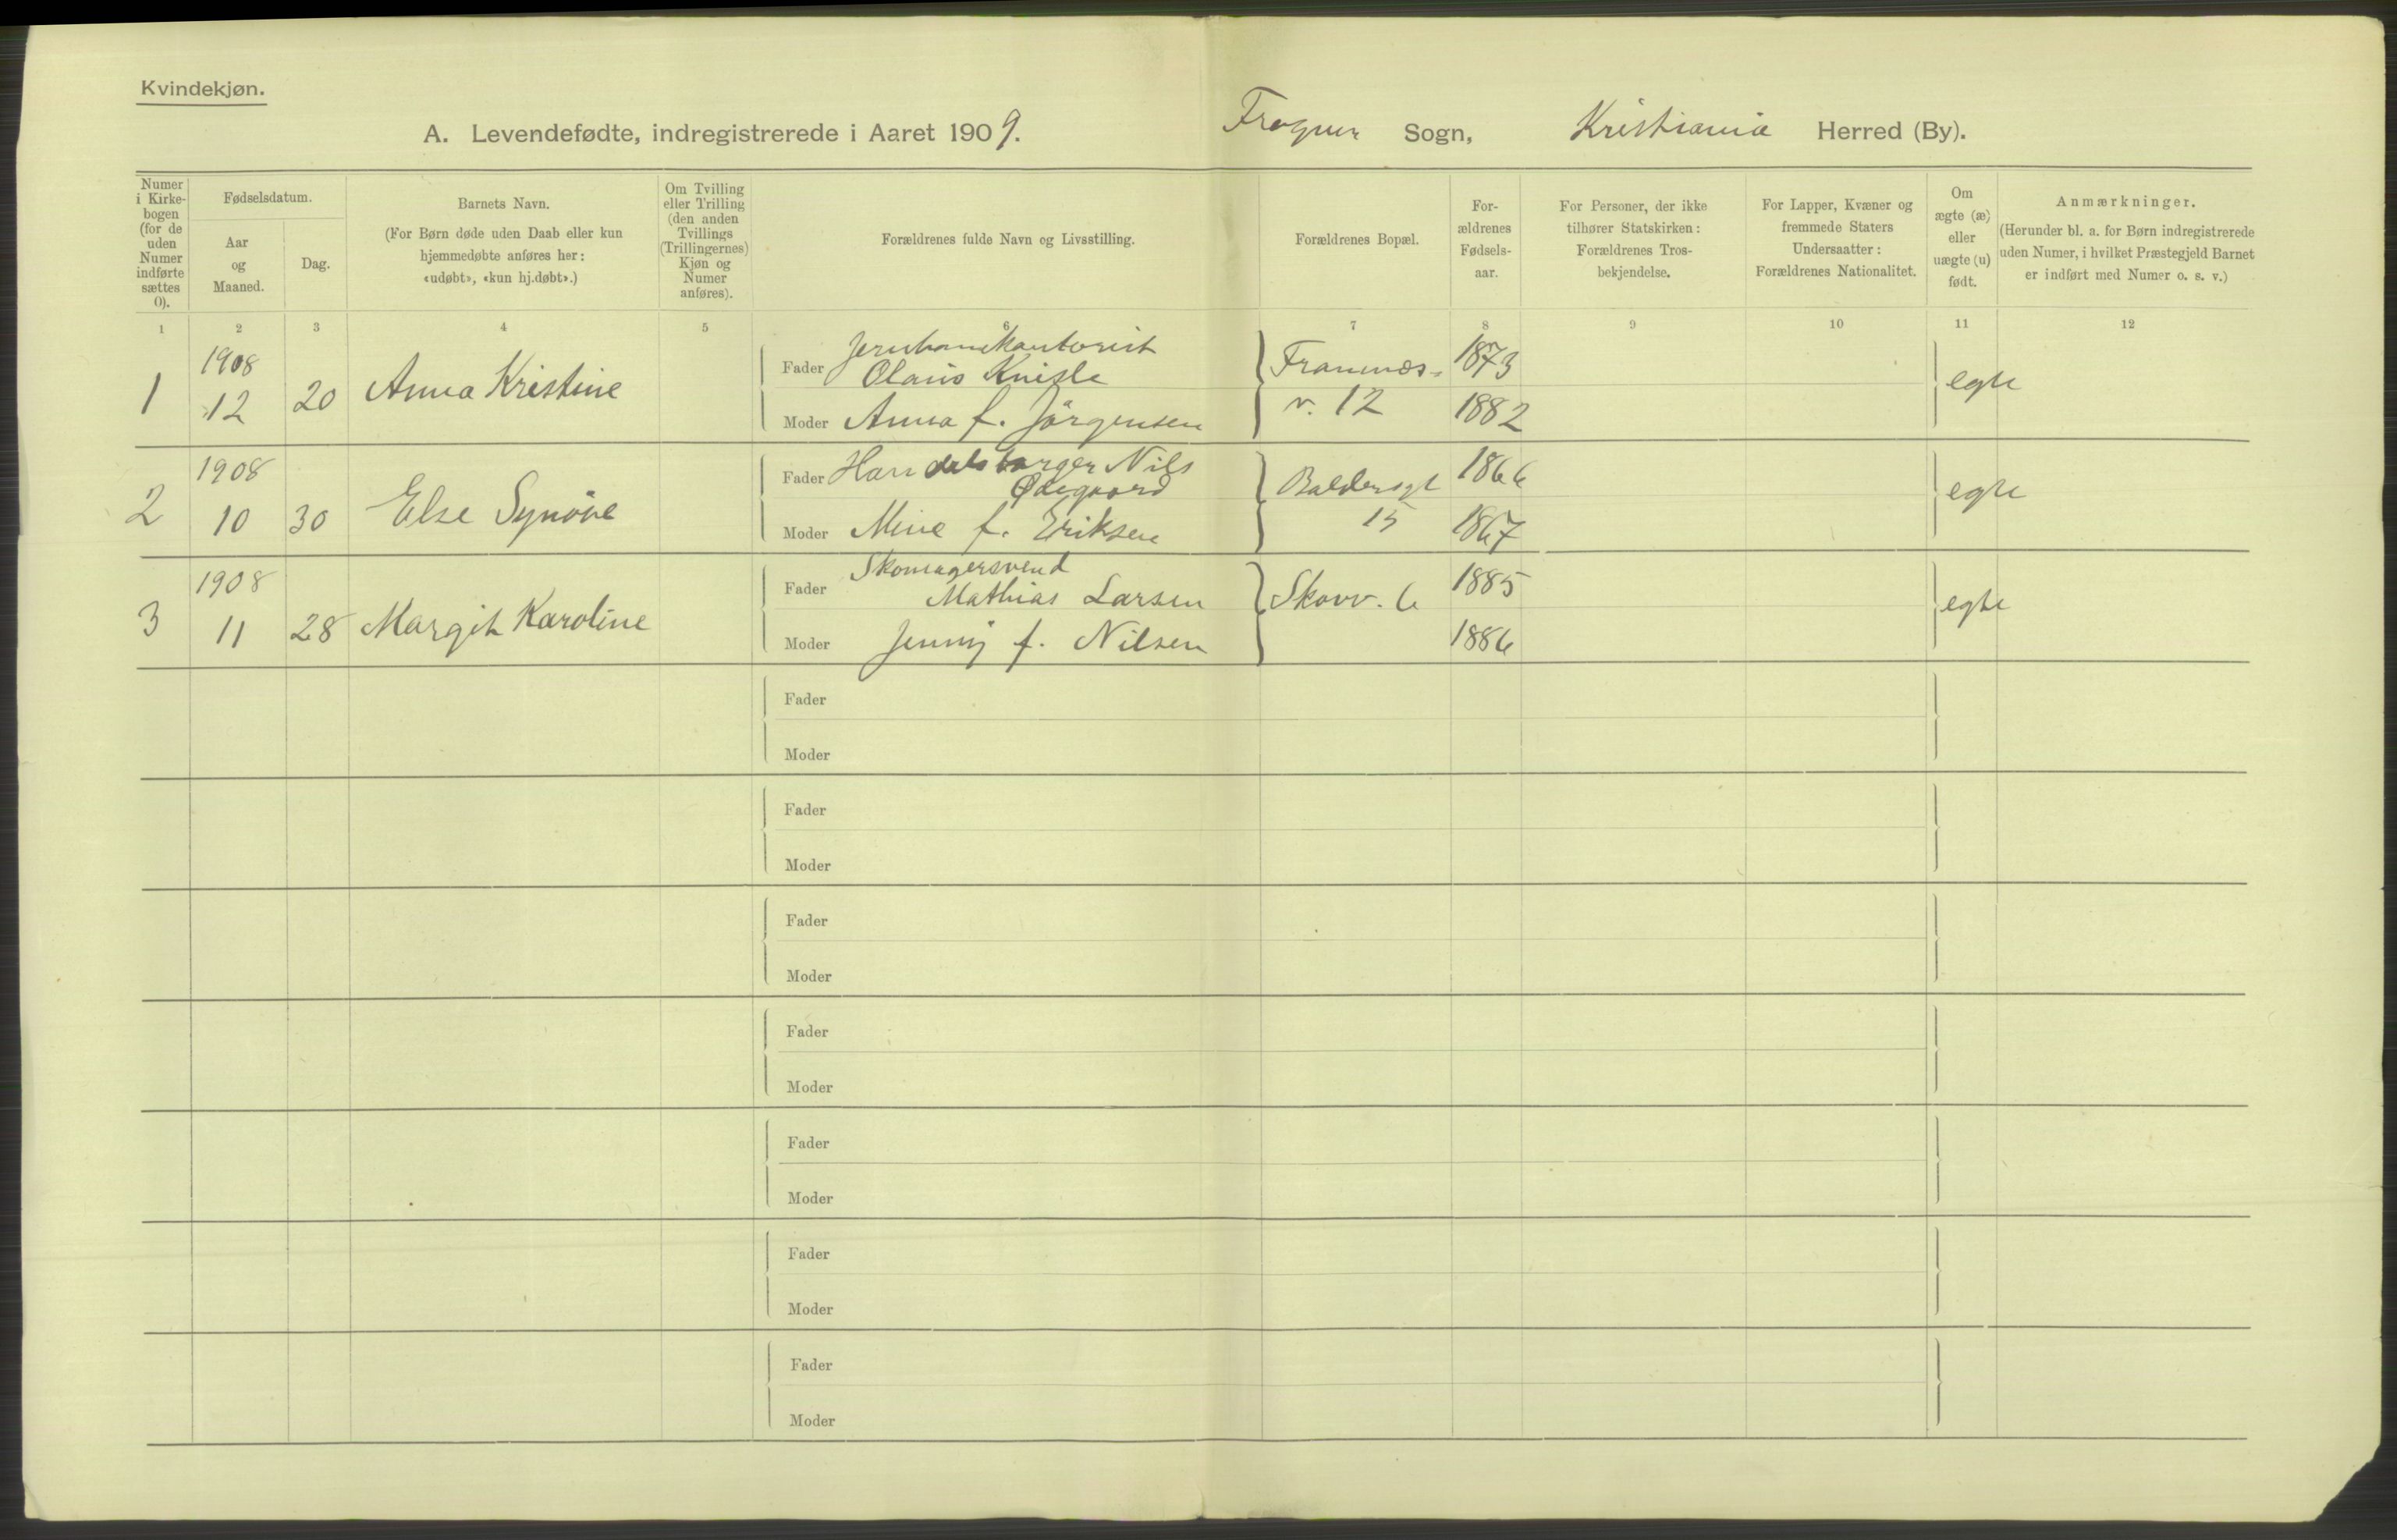 Kvindekjøn.
A. Levendefødte, indregistrerede i Aaret 1909.
Frogner Sogn, Kristiania Herred (By).
Numer
i Kirke-
bogen
(for de
uden
Numer
indførte
sættes
0).
Fødselsdatum.
Aar
og
Maaned.
Dag.
Barnets Navn.
(For Børn døde uden Daab eller kun
hjemmedøbte anføres her:
«udøbt», «kun hj.døbt».)
Om Tvilling
eller Trilling
(den anden
Tvillings
(Trillingernes)
Kjøn og
Numer
anføres).
Forældrenes fulde Navn og Livsstilling.
Forældrenes Bopæl.
For-
ældrenes
Fødsels-
aar.
For Personer, der ikke
tilhører Statskirken:
Forældrenes Tros-
bekjendelse.
For Lapper, Kvæner og
fremmede Staters
Undersaatter:
Forældrenes Nationalitet.
Om
ægte (æ)
eller
uægte (u)
født.
Anmærkninger.
(Herunder bl. a. for Børn indregistrerede
uden Numer, i hvilket Præstegjeld Barnet
er indført med Numer o. s. v.)
1 2 3 4 5 6 7 8 9 10 11 12
1
1908
12
20
Anna Kristine
Fader
Jernbanekontorist
Olaus
Moder Anna f. Jörgensen
Framnæs-
v. 12
1873
1882
egte
2
1908
10
30
Else Synöve
Fader Handelsborger Nils
Ødegaard
Moder Mine f. Eriksen
Baldersgt
15
1866
1867
egte
3
1908
11
28
Margit Karoline
Fader
Skomagersvend
Mathias Larsen
Moder Jenny f. Nilsen
Skovv. 6
1885
1886
egte
Fader
Moder
Fader
Moder
Fader
Moder
Fader
Moder
Fader
Moder
Fader
Moder
Fader
Moder